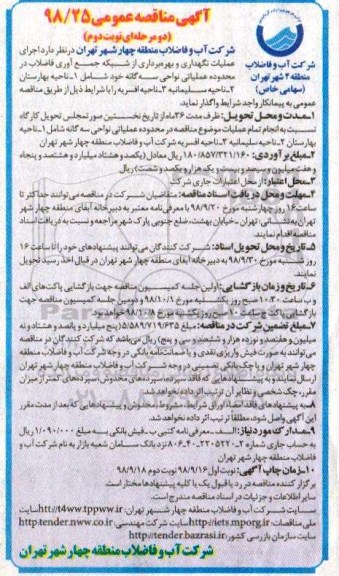 آگهی مناقصه عمومی ۹۸/۲۵
(دو مرحله‌ای نوبت دوم)
شرکت آب و فاضلاب
منطقه ۴ شهر تهران
(سهامی خاص)
شرکت آب و فاضلاب منطقه چهار شهر تهران در نظر دارد اجرای
عملیات نگهداری و بهره‌برداری از شبکه جمع آوری فاضلاب در
محدوده عملیاتی نواحی سه گانه خود شامل ۱-ناحیه بهارستان
۲-ناحیه سلیمانیه ۳-ناحیه افسریه را با شرایط ذیل از طریق مناقصه
عمومی به پیمانکار واجد شرایط واگذار نماید.
۱-مدت و محل تحویل: ظرف مدت ۳۶ ماه از تاریخ نخستین صورتمجلس تحویل کارگاه
نسبت به انجام تمام عملیات موضوع مناقصه در محدوده عملیاتی نواحی سه گانه شامل ۱-ناحیه
بهارستان ۲-ناحیه سلیمانیه ۳-ناحیه افسریه شرکت آب و فاضلاب منطقه چهار شهر تهران
۲-مبلغ برآوردی: ۱۸۰/۸۵۷/۳۲۱/۱۶۰ ریال معادل (یکصد و هشتاد میلیارد و هشتصد و پنجاه
و هفت میلیون و سیصد و بیست و یک هزار و یکصد و شصت) ریال
۳-محل اعتبار: از محل اعتبارات جاری شرکت
۴-مهلت و محل دریافت اسناد مناقصه: متقاضیان شرکت در مناقصه می توانند حداکثر تا
ساعت ۱۶ روز چهارشنبه مورخ ۹۸/۹/۲۰ با معرفی نامه معتبر به دبیرخانه آبفای منطقه چهار شهر
تهران به نشانی: تهران-خیابان بهشت، ضلع جنوبی پارک شهر مراجعه و نسبت به دریافت اسناد
مناقصه اقدام نمایند.
۵-تاریخ و محل تحویل اسناد: شرکت کنندگان می توانند پیشنهادهای خود را تا ساعت ۱۶
روز شنبه مورخ ۹۸/۹/۳۰ به دبیرخانه آبفای منطقه چهار شهر تهران در قبال اخذ رسید تحویل
نمایند.
۶-تاریخ و زمان بازگشایی: اولین جلسه کمیسیون مناقصه جهت بازگشایی پاکت‌های الف
و ب ساعت ۱۰:۳۰ صبح روز یکشنبه مورخ ۹۸/۱۰/۱ و دومین جلسه کمیسیون مناقصه جهت
بازگشایی پاکت ج ساعت ۱۰ صبح روز یکشنبه مورخ ۹۸/۱۰/۸ خواهد بود
۷-مبلغ تضمین شرکت در مناقصه: مبلغ ۵/۵۸۹/۷۱۹/۶۳۵ (پنج میلیارد و پانصد و هشتاد و نه
میلیون و هفتصد و نوزده هزار و ششصد و سی و پنج) ریال می‌باشد که شرکت کنندگان در مناقصه
می توانند به صورت فیش واریزی نقدی و یا ضمانت‌نامه بانکی در وجه شرکت آب و فاضلاب منطقه
چهار شهر تهران و یا چک بانکی تضمینی در وجه شرکت آب و فاضلاب منطقه چهار شهر تهران
ارسال نمایند و به پیشنهادهایی که فاقد سپرده، سپرده‌های مخدوش، سپرده‌های کمتر از میزان
مقرر، چک شخصی و نظایر آن ترتیب اثر داده نخواهد شد.
۸-به پیشنهادهای فاقد امضاء اوراق شرایط، مشروط، مخدوش و پیشنهادهایی که بعد از مدت مقرر
این آگهی واصل شود، مطلقاً ترتیب اثر داده نخواهد شد.
۹-مدارک مورد نیاز: الف-معرفی نامه کتبی ب-فیش بانکی به مبلغ ۱/۰۹۰/۰۰۰ ریال
به حساب جاری شماره ۲-۲۲۰۵۲۲۰-۴۰-۸۰۶ نزد بانک سامان شعبه بازار به نام شرکت آب و
فاضلاب منطقه چهار شهر تهران
۱۰-زمان چاپ آگهی: نوبت اول ۹۸/۹/۱۶ نوبت دوم ۹۸/۹/۱۸
برگزار کننده مناقصه در رد یا قبول یک یا کلیه پیشنهادها مختار است.
سایر اطلاعات و جزئیات در اسناد مناقصه مندرج است.
سایت شرکت آب و فاضلاب منطقه چهار شهر تهران: http://t4ww.tppww.ir سایت
ملی مناقصات: http://iets.mporg.ir سایت شرکت مهندسی: http:tender.nww.co.ir
سایت سازمان بازرسی کشور: http://tender.bazrasi.ir
شرکت آب و فاضلاب منطقه چهار شهر تهران